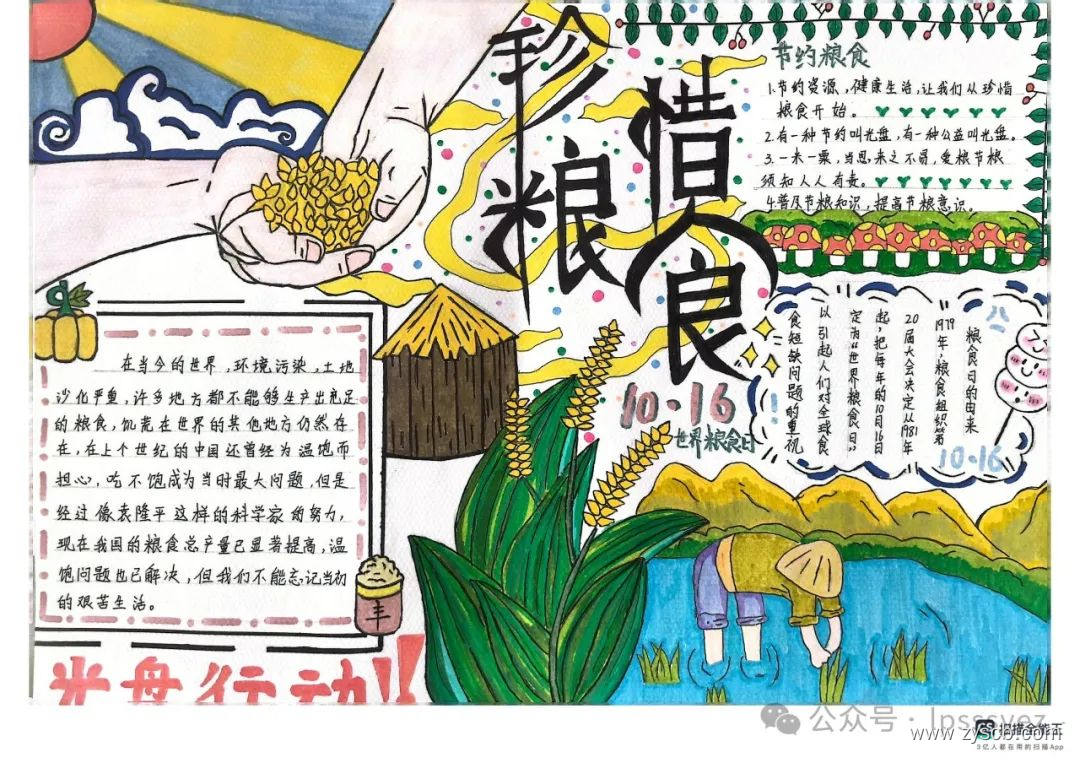 珍惜
粮食
10·16
世界粮食日
节约粮食
1.节约资源，健康生活，让我们从珍惜
粮食开始。
2.有一种节约叫光盘，有一种公益叫光盘。
3.一米一粟，当思来之不易，爱粮节粮
须知人人有责。
4.普及节粮知识，提高节粮意识。
粮食日的由来
1979年，粮食组织第
20届大会决定从1981年
起，把每年的10月16日
定为“世界粮食日”
以引起人们对全球食
食短缺问题的重视
10·16
在当今的世界，环境污染，土地
沙化严重，许多地方都不能够生产出充足
的粮食，饥荒在世界的其他地方仍然存
在，在上个世纪的中国还曾经为温饱而
担心，吃不饱成为当时最大问题，但是
经过像袁隆平这样的科学家的努力，
现在我国的粮食总产量已显著提高，温
饱问题也已解决，但我们不能忘记当初
的艰苦生活。
丰
光盘行动!!
公众号·lpsssyez
扫描全能王
www.zyscb.com
3亿人都在用的扫描App